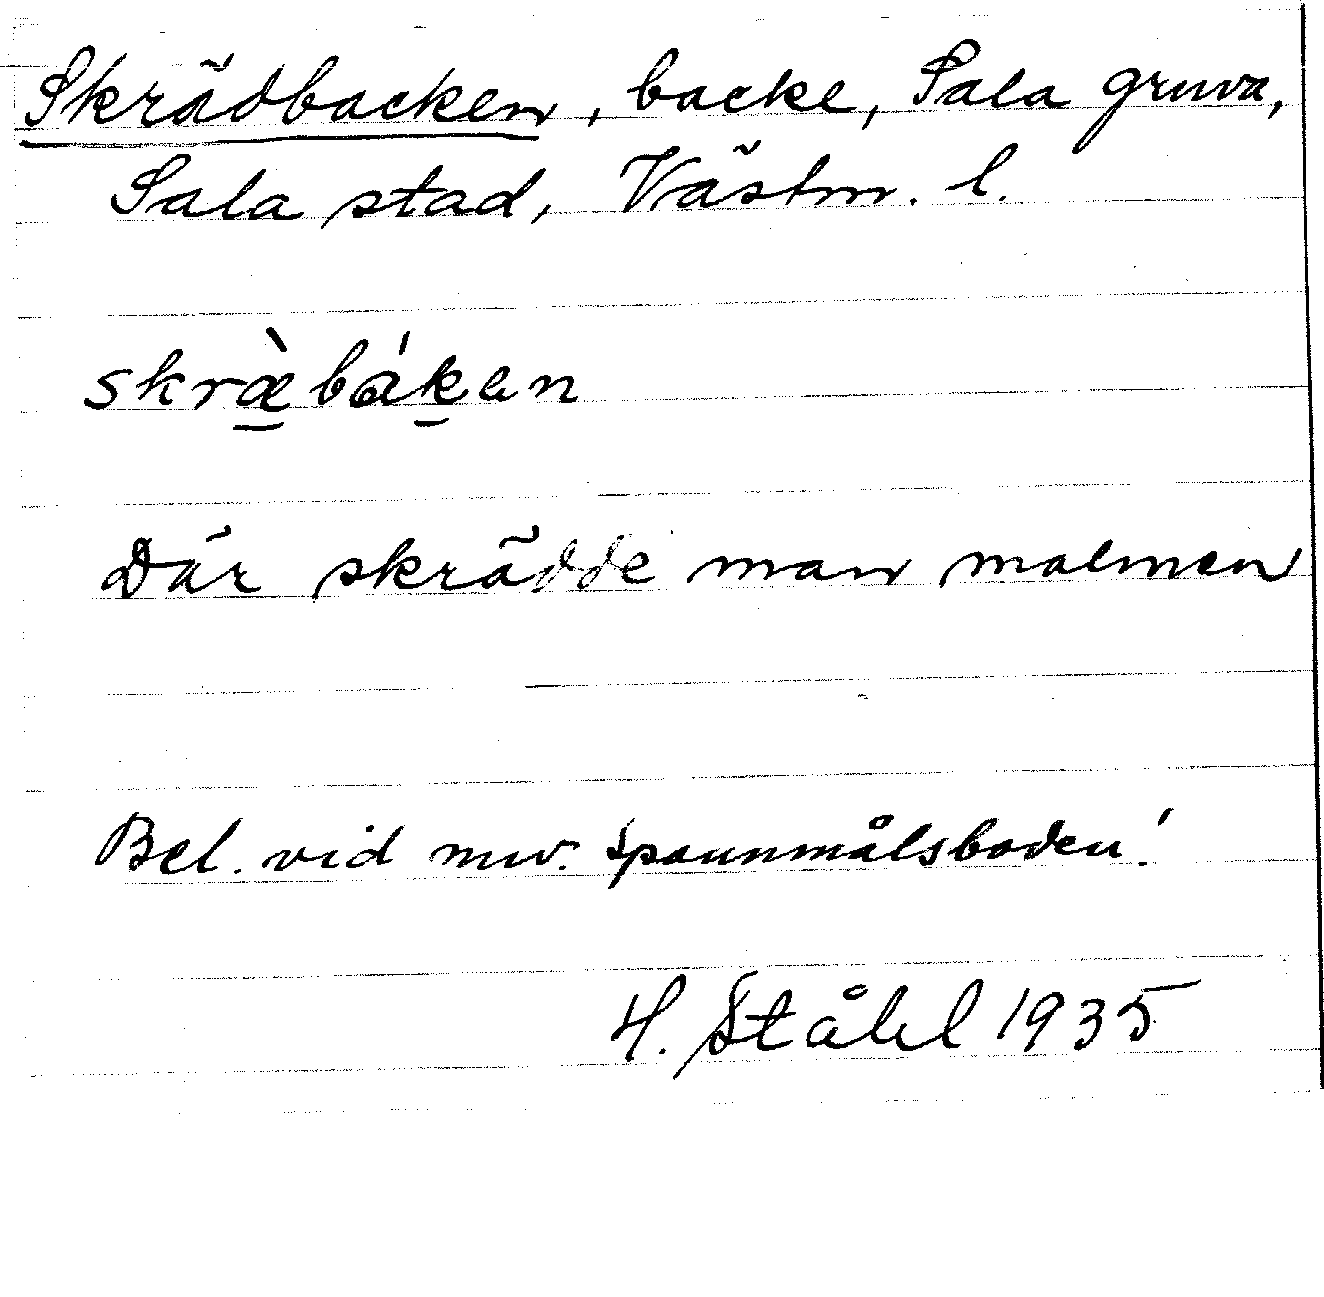 Skrädbacken, backe, Sala gruva,
Sala stad, Västm. l.
skræ̀bákan
Där skrädde man malmen
Bel. vid nuv. spannmålsboden!
H. Ståhl 1935